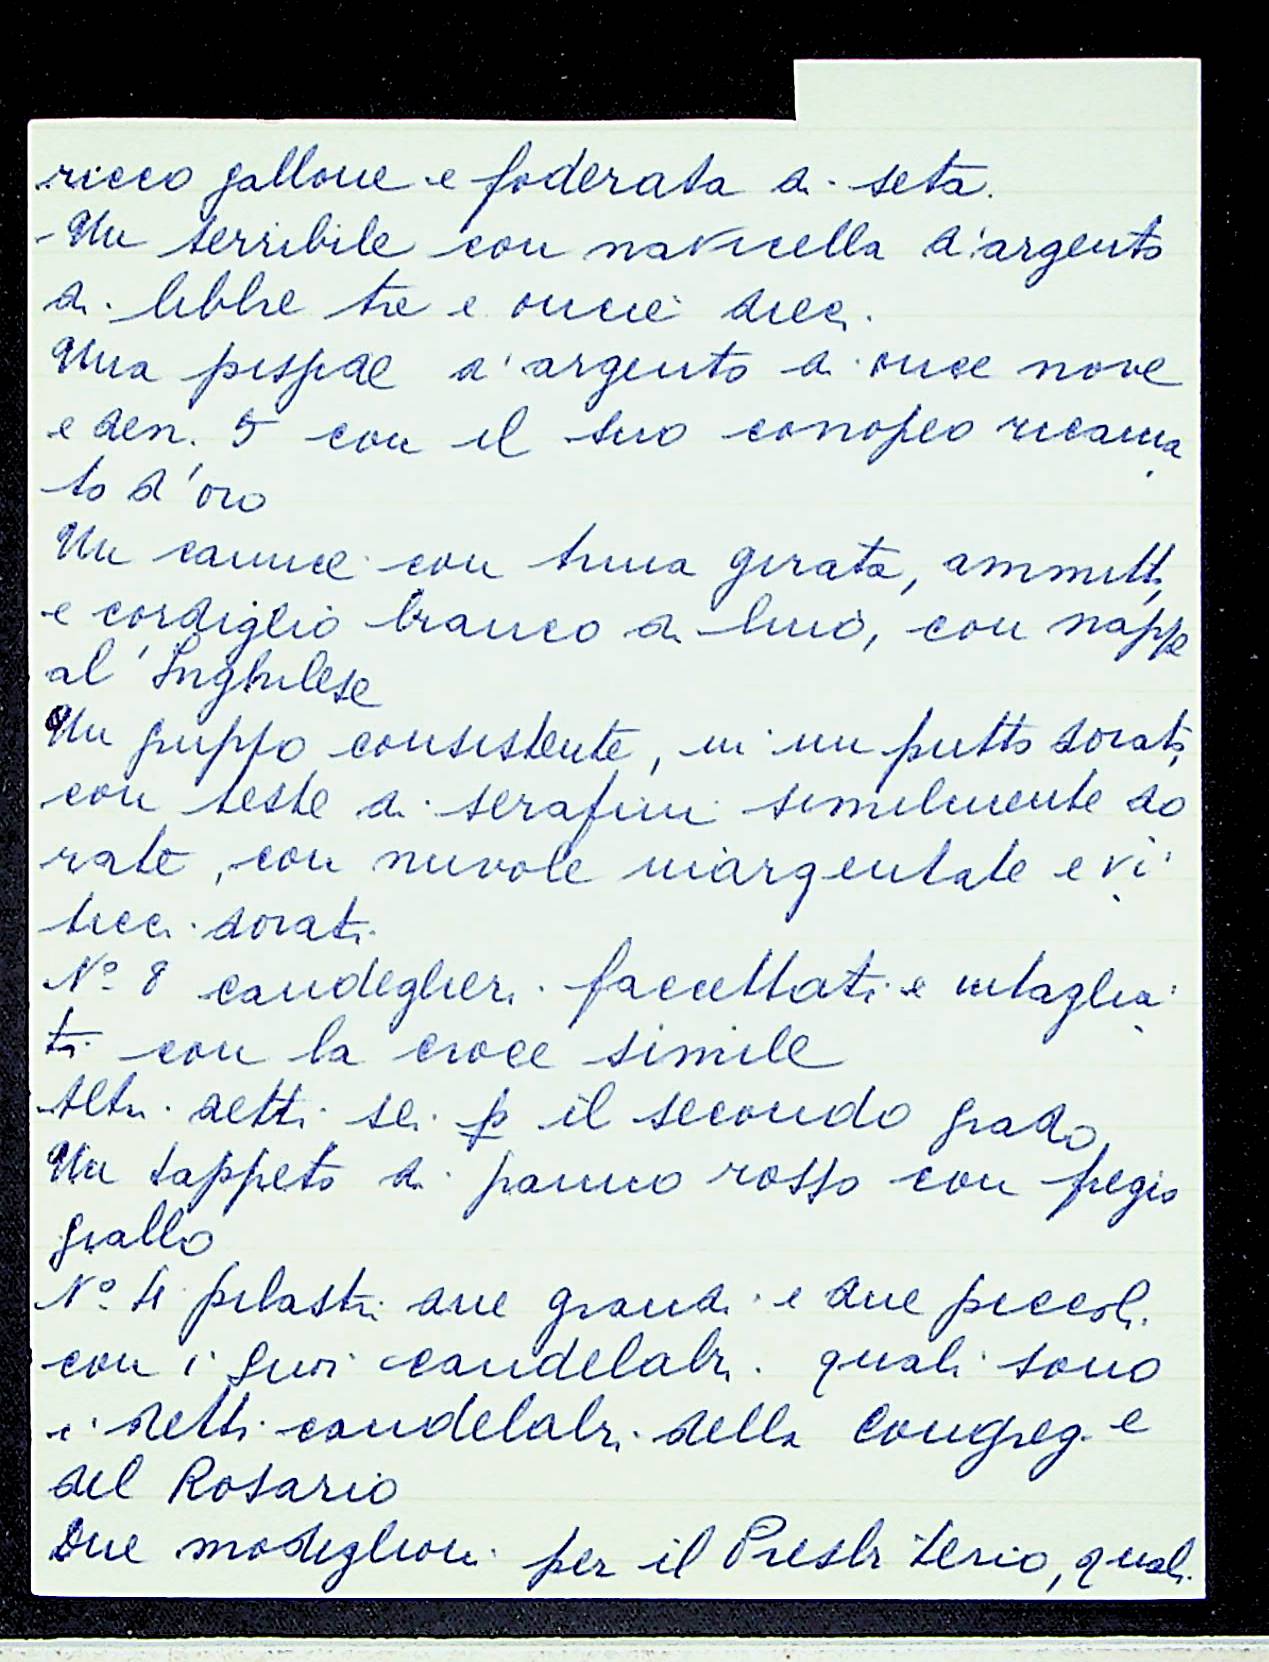 ricco gallone e foderata di seta.
- Un terribile con navicella d'argento
di libbre tre e oncie dieci.
Una pisside d'argento di once nove
e den. 5 con il suo conopeo ricama
to d'oro
Un camice con trina girata, ammitti,
e cordiglio bianco di lino, con nappe
al'Inghilese
Un gruppo consistente, in un putto dorato,
con teste di serafini similmente do
rate, con nuvole inargentate e vi
ticci dorati.
N.º 8 candeglieri faccettati e intaglia
ti con la croce simile
Altri detti sei p il secondo grado,
Un tappeto di panno rosso con fregio
giallo
N.º 4 pilastri due grandi e due piccoli.
con i suoi candelabri quali sono
i detti candelabri della Congreg.e
del Rosario
Due modiglioni per il Presbiterio, quali